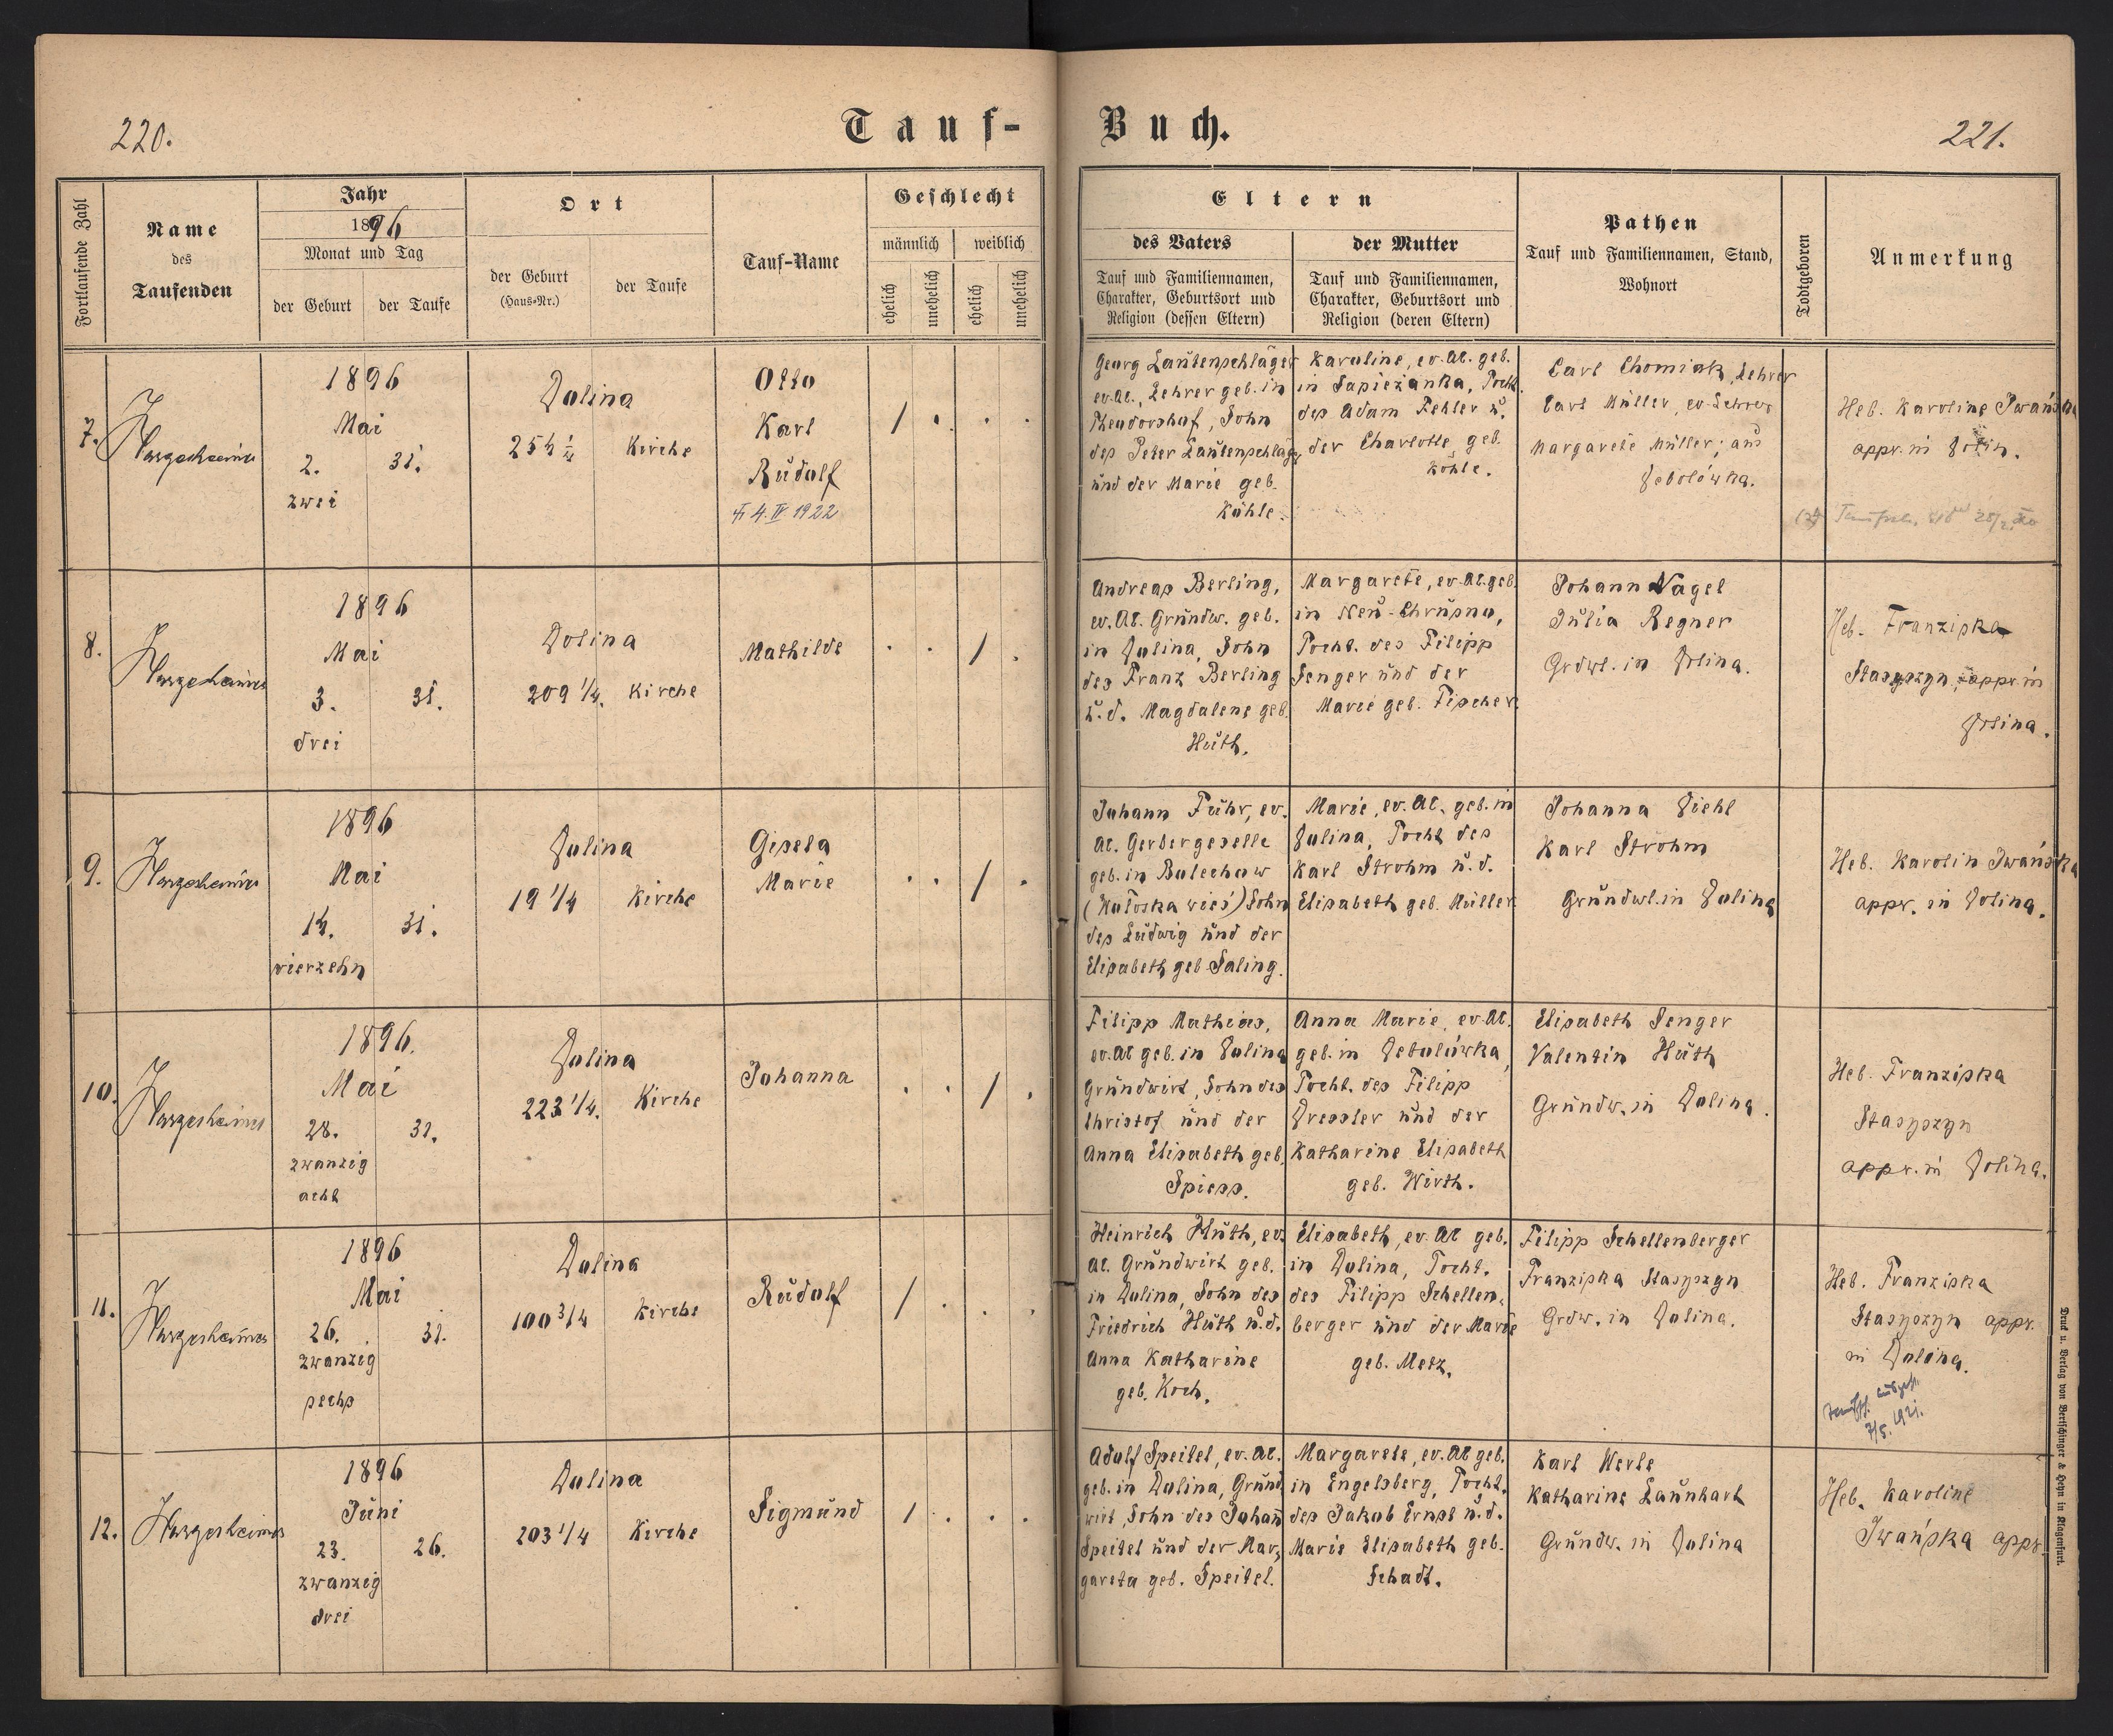 220.
Tauf-
Fortlaufende Zahl
Name
des
Taufenden
Jahr
1896
Monat und Tag
der Geburt
der Taufe
Ort
der Geburt
(Haus-Nr.)
der Taufe
Tauf-Name
Geschlecht
männlich
weiblich
ehelich
unehelich
ehelich
unehelich
7.
Hargesheimer
1896
Mai
2. 31.
zwei
Dolina
Kirche
Otto
Karl
Rudolf
4. IV. 1922
/ . . .
8.
Hargesheimer
1896
Mai
3. 31.
drei
Dolina
209 1/4. Kirche
Mathilde
. . / .
9.
Hargesheimer
1896
Mai
14. 31.
vierzehn
Dolina
19 1/4 Kirche
Gisela
Marie
. . / .
10.
Hargesheimer
1896.
Mai
28. 31.
zwanzig
acht
Dolina
223 1/4. Kirche
Johanna
. . / .
11.
Hargesheimer
1896
Mai
26. 31.
zwanzig
sechs
Dolina
100 3/4 Kirche
Rudolf
/ . . .
12.
Hargesheimer
1896
Juni
23. 26.
zwanzig
drei
Dolina
203 1/4 Kirche
Sigmund
/ . . .
Buch.
221.
Eltern
des Vaters
Tauf und Familiennamen,
Charakter, Geburtsort und
Religion (dessen Eltern)
der Mutter
Tauf und Familiennamen,
Charakter, Geburtsort und
Religion (deren Eltern)
Pathen
Tauf und Familiennamen, Stand,
Wohnort
Todtgeboren
Anmerkung
Georg Lautenschläger
ev. AC., Lehrer geb. in
Theodorshof, Sohn
des Peter Lautenschläger
und der Marie geb.
Köhle.
Karoline, ev. AC. geb.
in Sapieżanka, Tocht.
des Adam Fehler u.
der Charlotte geb.
Köhle.
Carl Chomiak, Lehrer
Carl Müller, ev. Lehrer
Margarete Müller; aus
Debolówka.
Heb. Karoline Iwańska
appr. in Dolin.
Andreas Berling,
ev. AC. Grundw. geb.
in Dolina, Sohn
des Franz Berling
u. d. Magdalene geb.
Huth.
Margarete, ev. AC. geb.
in Neu-Chrusno,
Tocht. des Filipp
Senger und der
Marie geb. Fischer.
Johann Nagel
Julia Regner
Grdwt. in Dolina.
Heb. Franziska
Stasyszyn, appr. in
Dolina.
Johann Fuhr, ev.
AC. Gerbergeselle
geb. in Bolechow
(Wołoska wieś) Sohn
des Ludwig und der
Elisabeth geb. Saling.
Marie, ev. AC. geb. in
Dolina, Tocht des
Karl Strohm u. d.
Elisabeth geb. Müller
Johanna Diehl
Karl Strohm
Grundwt. in Dolina
Heb. Karolin Iwańska
appr. in Dolina.
Filipp Mathias,
ev. AC geb. in Dolina
Grundwirt, Sohn des
Christof und der
Anna Elisabeth geb.
Spiess.
Anna Marie, ev. AC.
geb. in Debolówka,
Tocht. des Filipp
Dressler und der
Katharine Elisabeth
geb. Wirth.
Elisabeth Senger
Valentin Huth
Grundw. in Dolina.
Heb. Franziska
Stasyszyn
appr. in Dolina.
Heinrich Huth, ev.
AC. Grundwirt geb.
in Dolina, Sohn des
Friedrich Huth u. d.
Anna Katharine
geb. Koch.
Elisabeth, ev. AC geb.
in Dolina, Tocht.
des Filipp Schellen-
berger und der Marie
geb. Metz.
Filipp Schellenberger
Franziska Stasyszyn
Grdw. in Dolina.
Heb. Franziska
Stasyszyn appr.
in Dolina.
7/5. 1921.
Adolf Speitel, ev. AC.
geb. in Dolina, Grund-
wirt, Sohn des Johann
Speitel und der Mar-
gareta geb. Speitel.
Margarete, ev. AC geb.
in Engelsberg, Tocht.
des Jakob Ernst u. d.
Marie Elisabeth geb.
Schadt.
Karl Werle
Katharine Launhart
Grundw. in Dolina
Heb. Karoline
Iwańska appr.
Druck u. Verlag von Bertschinger & Heyn in Klagenfurt.